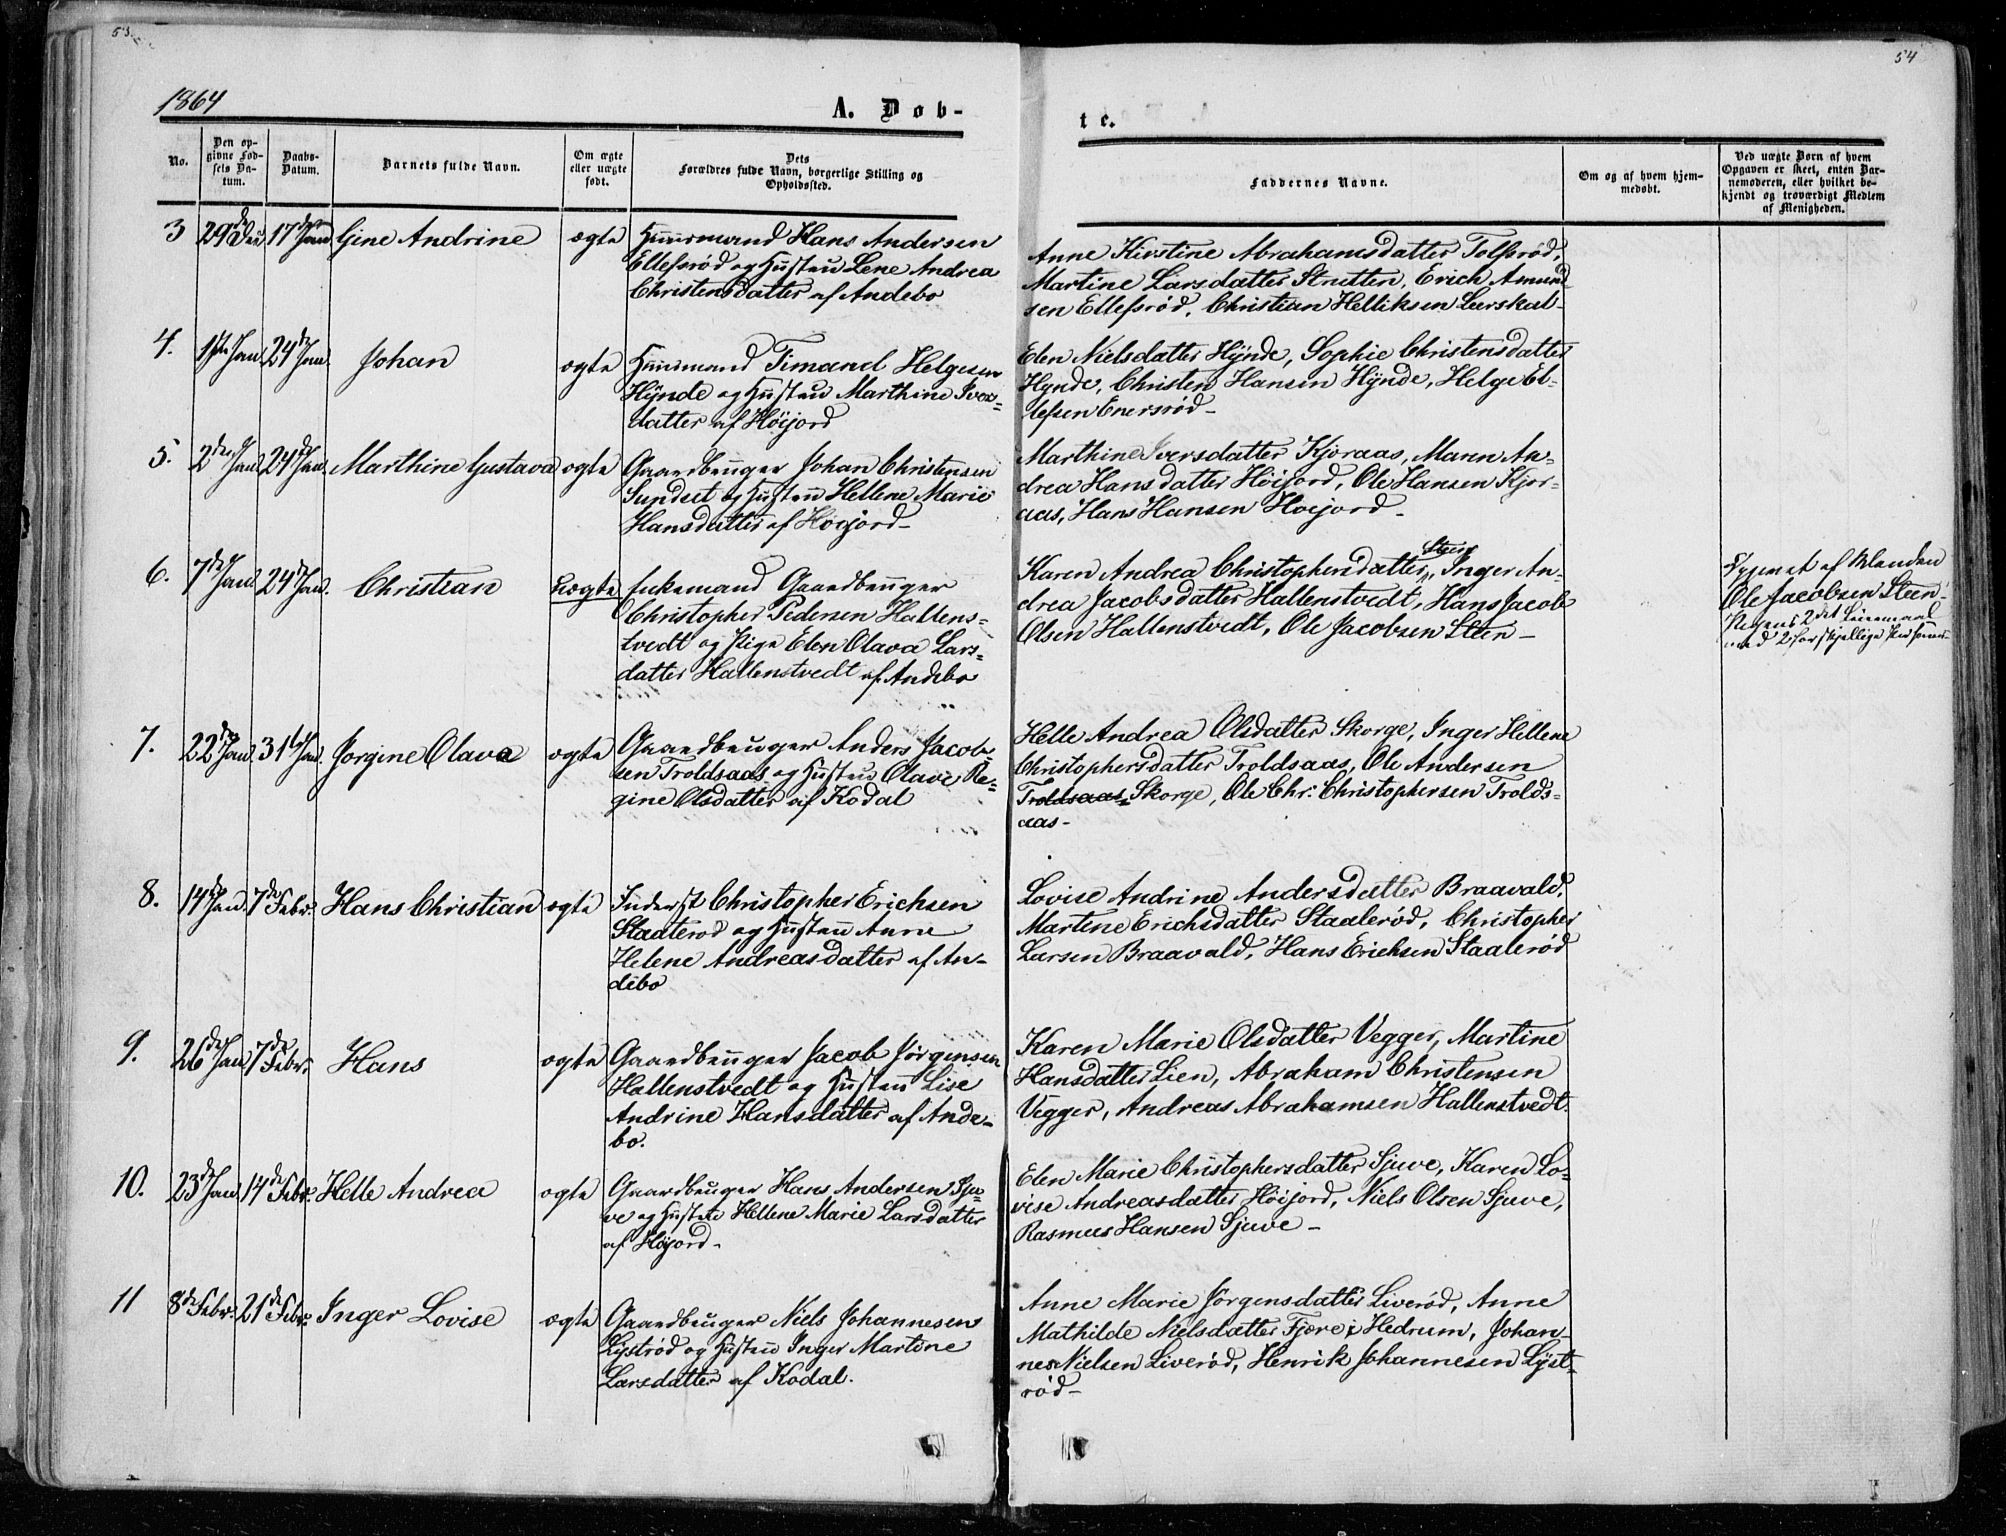 53
54
1864
A. Døb-
te.
No.
Den opgivne Fødsels Datum.
Daabs-Datum.
Barnets fulde Navn.
Om ægte eller uægte født.
Dets Forældres fulde Navn, borgerlige Stilling og Opholdssted.
Faddernes Navne.
Om og af hvem hjemmedøbt.
Ved uægte Børn af hvem Opgaven er skeet, enten Barnemoderen, eller hvilket bekjendt og troværdigt Medlem af Menigheden.
3 29de Dec 17de Jan Gine Andrine ægte Huusmand Hans Andersen
Ellefsrød og Hustru Lene Andrea
Christensdatter af Andebo
Anne Kirstine Abrahamsdatter Tolfsrød,
Martine Larsdatter Stratten, Erich Amund
sen Ellefsrød, Christian Helliksen Lerskal-
4. 1ste Jan. 24de Jan. Johan ægte Huusmand Timand Helgesen
Hÿnde og Hustru Marthine Ivers=
datter af Høijord
Elen Nielsdatter Hÿnde, Sophie Christensdatter
Hynde, Christen Hansen Hÿnde, Helge El=
lefsen Enersrød-
5. 2den Jan. 24de Jan. Marthine Gustava ægte Gaardbruger Johan Christensen
Sundset og Hustru Hellene Marie
Hansdatter af Høijord-
Marthine Iversdatter Kjøraas, Maren An=
drea Hansdatter Høijord, Ole Hansen Kjør=
aas, Hans Hansen Høijord-
6. 7de Jan. 24de Jan. Christian Uægte Enkemand Gaardbruger
Christopher Pedersen Hallens=
tvedt og Pige Elen Olava Lars=
datter Hallenstvedt af Andebo
Karen Andrea Christophersdatter Steen, Inger An=
drea Jacobsdatter Hallenstvedt, Hans Jacob
Olsen Hallenstvedt, Ole Jacobsen Steen-
Ole Jacobsen Steen.
Pigens 2det Leiermaal
med 2 forskjellige Personer
7. 22de Jan. 31te Jan. Jørgine Olava ægte Gaardbruger Anders Jacob
sen Troldsaas og Hustru Olave Re=
gine Olsdatter af Kodal
Helle Andrea Olsdatter Skorge, Inger Hellene
Christophersdatter Troldsaas, Ole Andersen
Troldsaas Skorge, Ole Chr: Christophersen Trolds=
aas-
8. 14de Jan. 7de Febr. Hans Christian ægte Inderst Christopher Erichsen
Staalerød og Hustru Anne
Helene Andreasdatter af An-
debo
Lovise Andrine Andersdatter Braavald,
Martine Erichsdatter Staalerød, Christopher
Larsen Braavald, Hans Erichsen Staalerød
9. 26de Jan 7de Febr. Hans ægte Gaardbruger Jacob Jørgensen
Hallenstvedt og Hustru Lise
Andrine Hansdatter af Ande-
bo.
Karen Marie Olsdatter Vegger, Martine
Hansdatter Lien, Abraham Christensen
Vegger, Andreas Abrahamsen Hallenstvedt.
10. 23de Jan 14de Febr. Helle Andrea ægte Gaardbruger Hans Andersen Sju=
ve og Hustru Hellene Marie Larsdatter
af Høijord-
Elen Marie Christophersdatter Sjuve, Karen Lo=
vise Andreasdatter Høijord, Niels Olsen Sjuve,
Rasmus Hansen Sjuve-
11 8de Febr. 21de Febr. Inger Lovise ægte Gaardbruger Niels Johannesen
Lystrød og Hustru Inger Martine
Larsdatter af Kodal.
Anne Marie Jørgensdatter Liverød, Anne
Mathilde Nielsdatter Fjære i Hedrum, Johan-
nes Nielsen Liverød, Henrik Johannesen Lÿst=
rød-